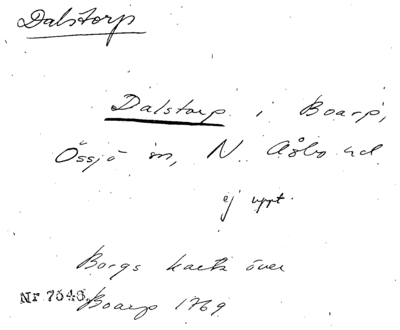 Dalstorp
Dalstorp i Boarp,
Össjö sn, N. Åsbo hd
ej uppt.
Borgs karta över
Nr 7546. Boarp 1769